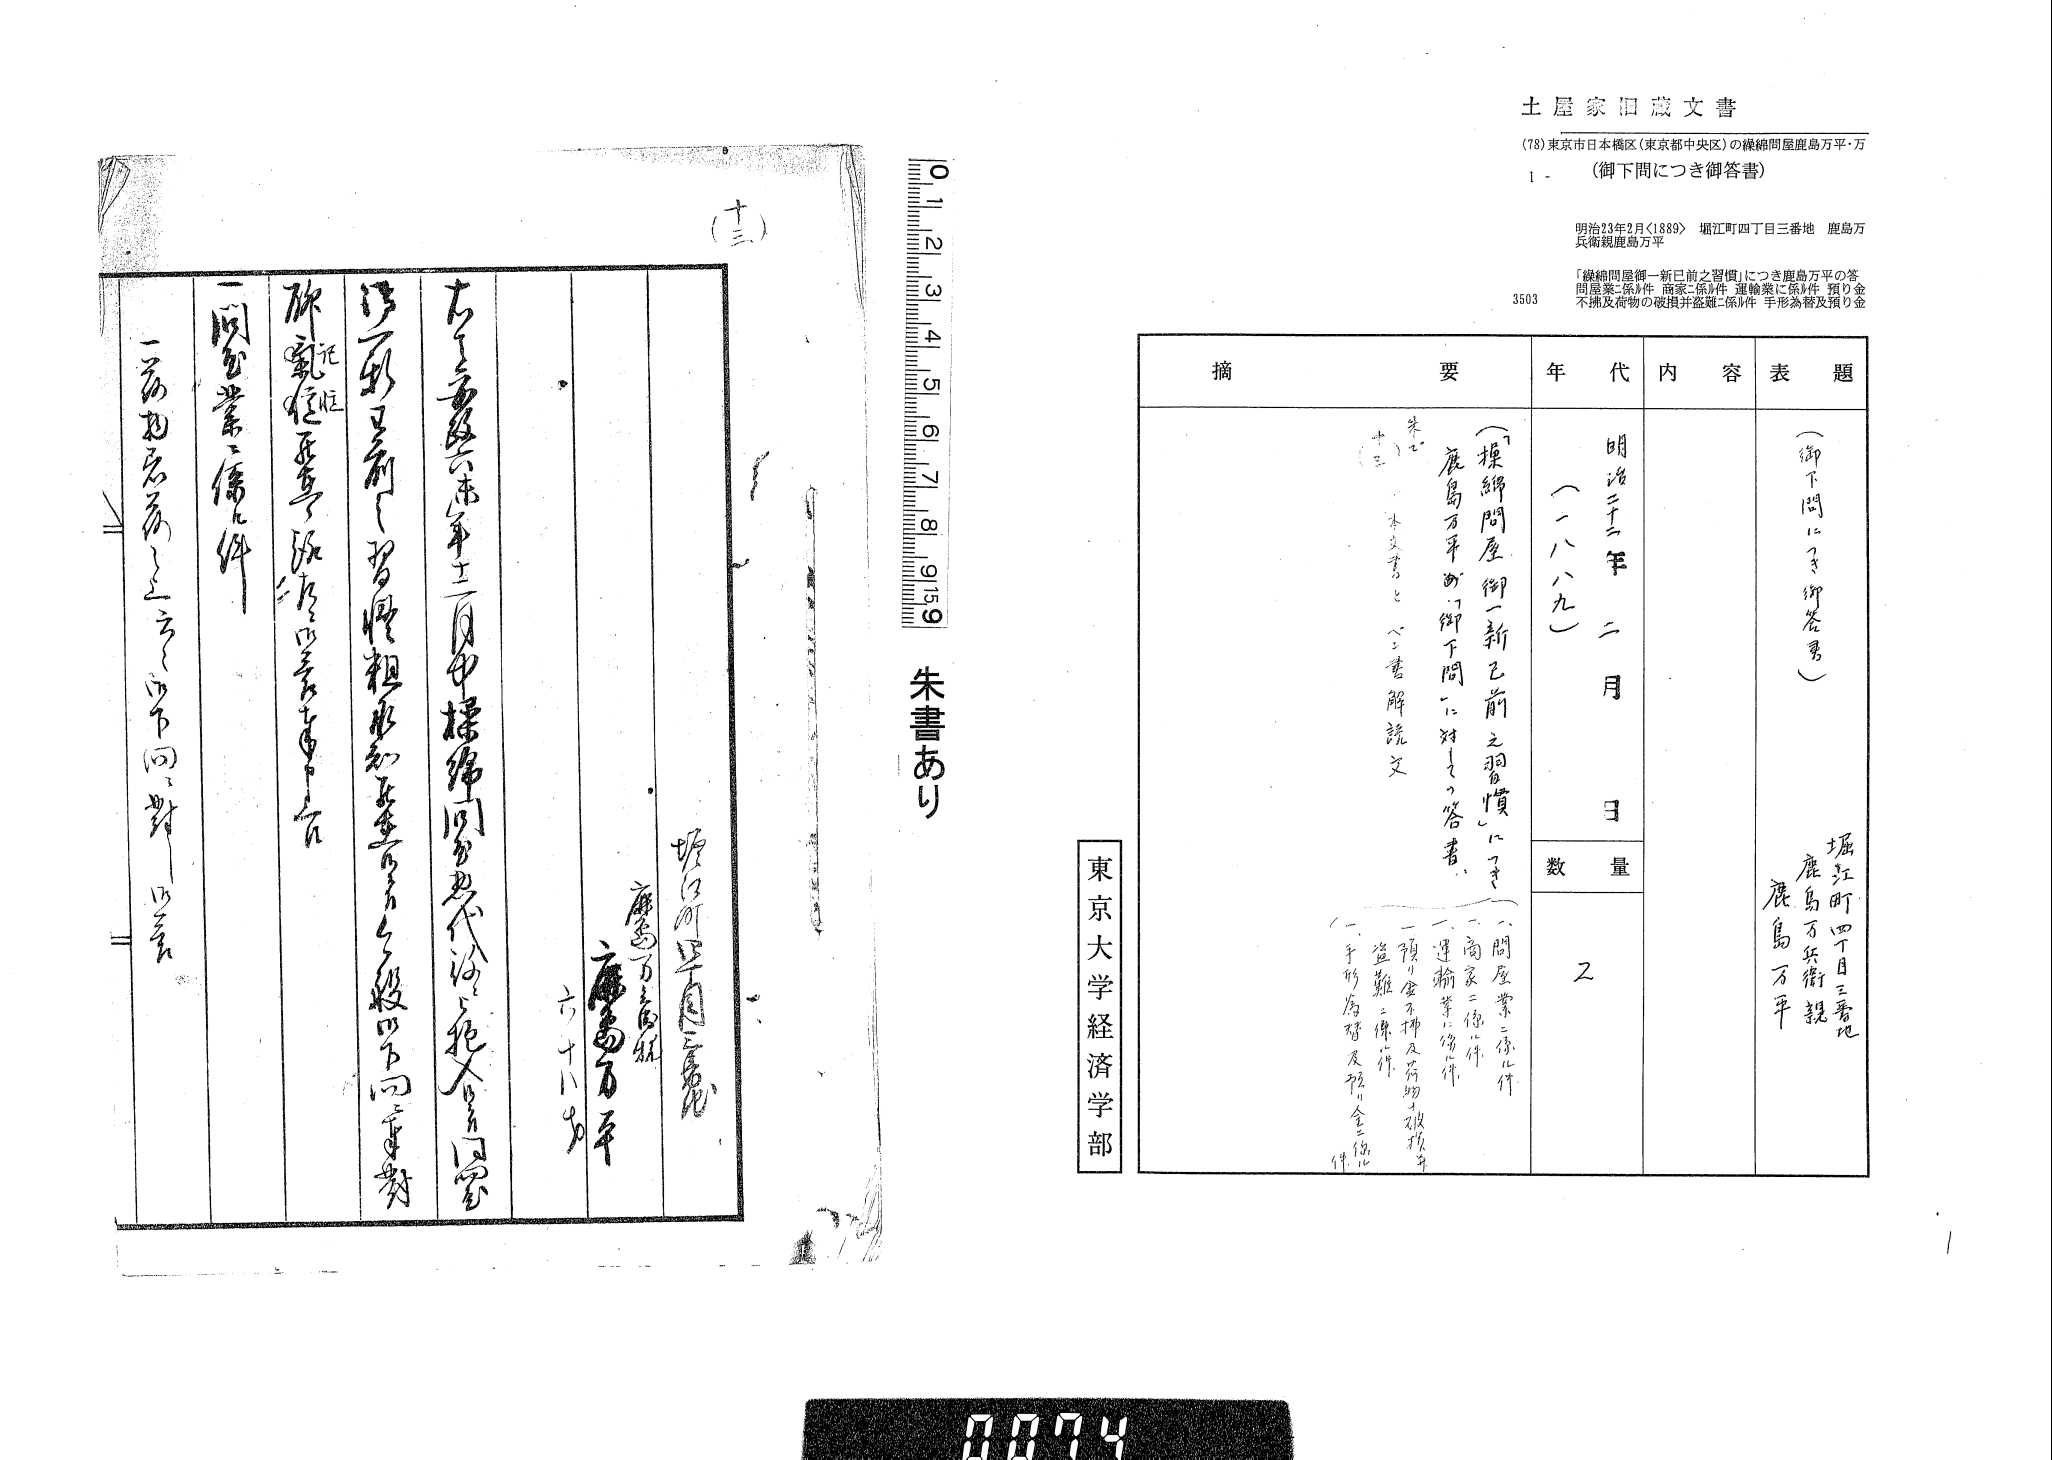 土屋家旧蔵文書
(78)東京市日本橋区(東京都中央区)の繰綿問屋鹿島万平・万
1 - (御下問につき御答書)
明治23年2月<1889> 堀江町四丁目三番地 鹿島万
兵衛親鹿島万平
「繰綿問屋御一新已前之習慣」につき鹿島万平の答
問屋業ニ係ル件 商家ニ係ル件 運輸業に係ル件 預り金
3503 不拂及荷物の破損并盗難ニ係ル件 手形為替及預り金
表題
(御下問につき御答書)
堀江町四丁目三番地
鹿島万兵衛親
鹿島万平
内容
年代
明治二十二年二月 日
(一八八九)
数量
2
摘要
(「操綿問屋御一新已前之習慣」につき
鹿島万平が「御下問」に対しての答書、
一、問屋業ニ係ル件
一、商家ニ係ル件
一、運輸業に係ル件
一、預り金不拂及荷物の破損并
盗難ニ係ル件
一、手形為替及預り金ニ係ル
件
朱で
(十三)
本文書と ペン書解読文
東京大学経済学部
1
0 1 2 3 4 5 6 7 8 9 15 9
朱書あり
(十三)
堀江町四丁目三番地
鹿島万兵衛親
鹿島万平
六十八才
右之安政六未年十二月中操綿問屋惣代
御一新已前之習慣粗承知
記憶
一問屋業ニ係ル件
一荷物着荷之上云々御下問ニ對し御答
0074